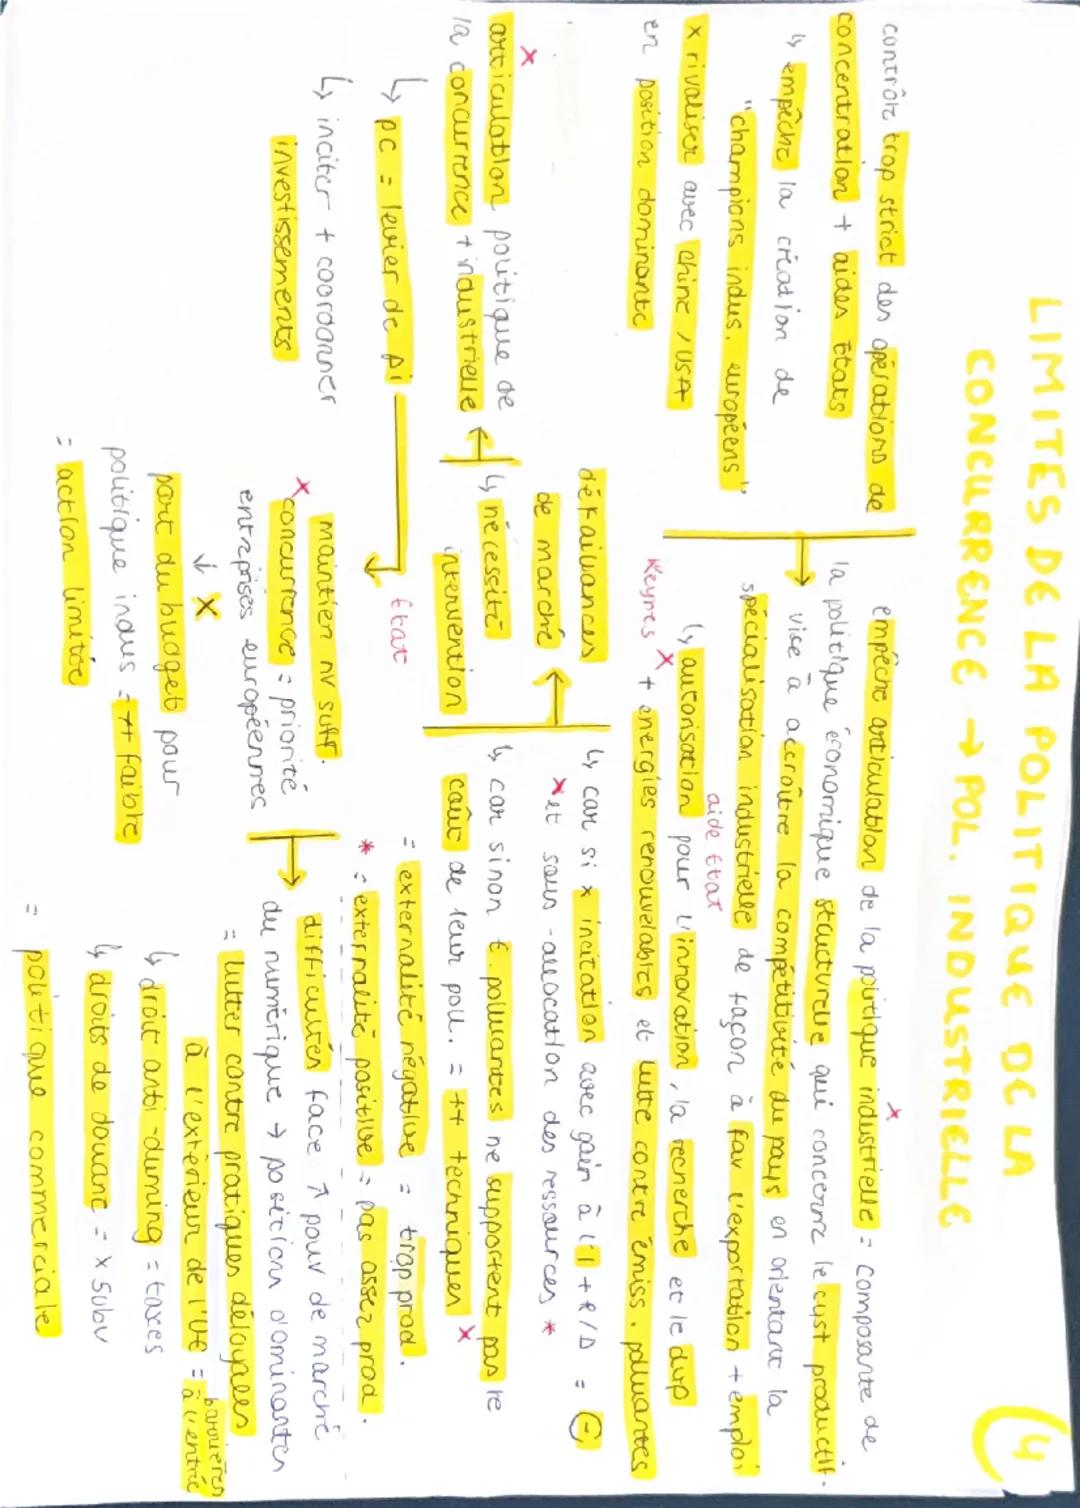 LIMITES DE LA POLITIQUE DE LA
CONCURRENCE → POL. INDUSTRIELLE
4
contrôle trop strict des opérations de
concentration + aides Etats
↳ empêche la création de
"champions indus. européens"
x rivaliser avec chine / USA
en position dominante
empêche articulation de la politique industrielle = composante de
la politique économique structurelle qui concerne le syst productif.
vise à accroître la compétitivité du pays en orientant la
spécialisation industrielle de façon à fav l'exportation + emploi
aide Etat
↳ autorisation pour l'innovation, la recherche et le dvp
Keynes x + energies renouvelables et lutte contre émiss. polluantes
défaillances
de marché
↳ nécessité
intervention
↳ car si x incitation avec gain à l'I + R/D = (-)
x et sous-allocation des ressources *
↳ car sinon E polluantes ne supportent pas le
coût de leur poll. = ++ techniques x
= externalité négative = trop prod.
* = externalité positive = pas assez prod.
x
articulation politique de
la concurrence + industrielle
↳ pc = levier de pi
↳ inciter + coordonner
investissements
Etat
maintien nv suff.
x concurrence = priorité
entreprises européennes
↓ x
part du budget pour
politique indus = ++ faible
= action limitée
difficultés face ↗ pouv de marché
du numérique → positions dominantes
= lutter contre pratiques déloyales
à l'extérieur de l'UE = barrières
à l'entrée
↳ droit anti-duming = taxes
↳ droits de douane = x subv
= politique commerciale